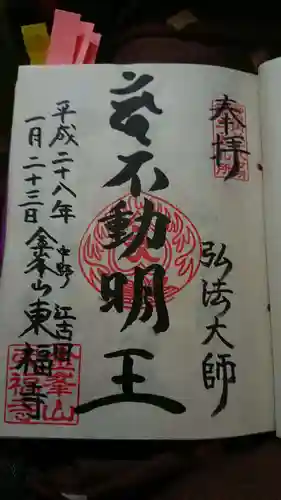 奉拝
弘法大師
不動明王
平成二十八年
一月二十三日
中野 江古田
金峯山東福寺
金峯山
東福寺